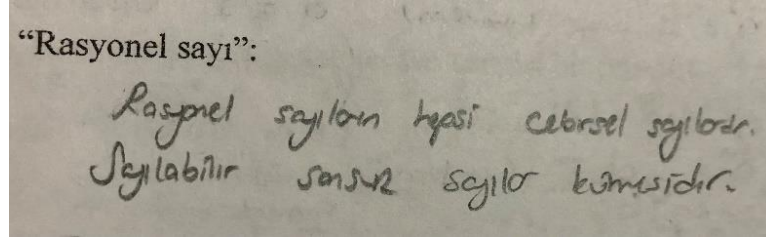 “Rasyonel sayı”:
Rasyonel sayıların hepsi cebirsel sayılardır.
Sayılabilir sonsuz sayılar kümesidir.